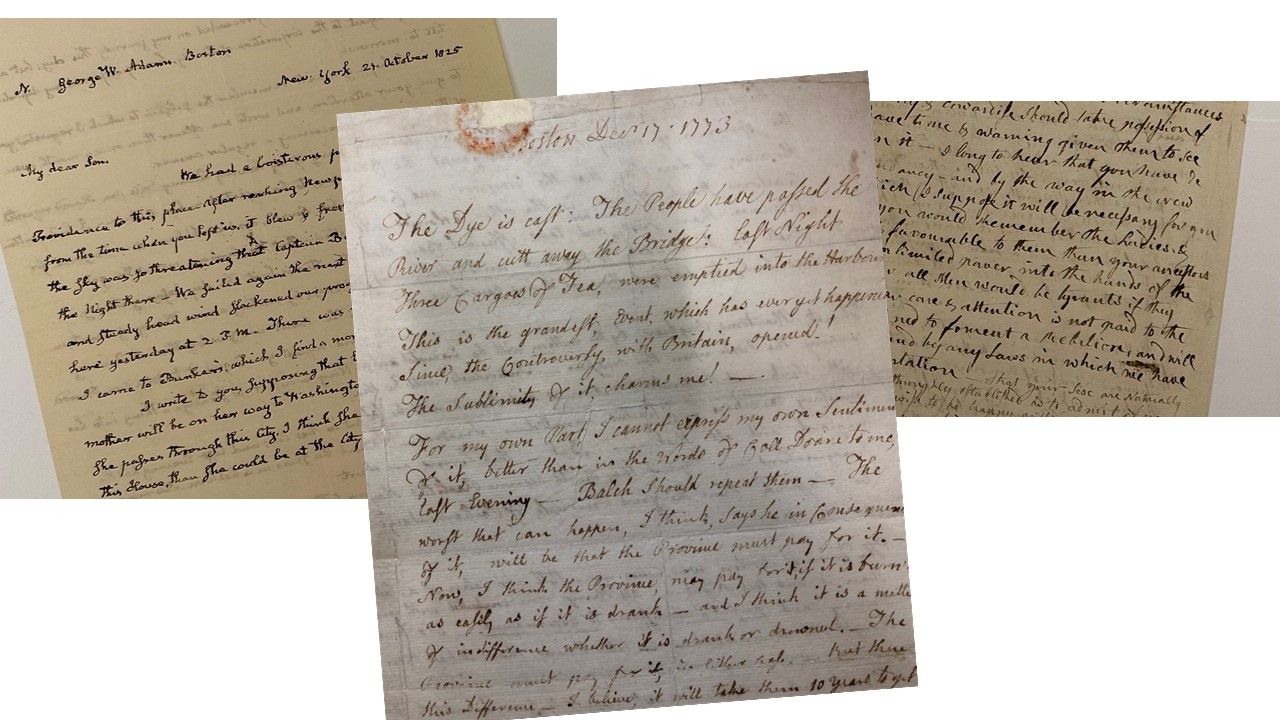 N. George W. Adams. Boston
New York 21. October 1825
My dear Son.
We had a boisterous
Providence to this place. After reaching Newp
from the time when you left us. it blew a fres
the Sky was so threatening that Captain B
the Night there - We sailed again the next
and steady head wind slackened our pro
here yesterday at 2 P.M. There was
I came to Bunkers, which I find a mo
I write to you, supposing that
mother will be on her way to Washington
She passes through this City. I think She
this House, than She could be at the City
Boston Decr 17. 1773
The Dye is cast: The People have passed the
River and cutt away the Bridge: last Night
Three Cargoes of Tea, were emptied into the Harbour
This is the grandest, Event, which has ever yet happened
Since, the Controversy, with Britain, opened!
The Sublimity of it, charms me! —
For my own Part, I cannot express my own Sentimen
of it, better than in the Words of Coll Doane to me,
last Evening — Balch Should repeat them — The
worst that can happen, I think, Says he in Consequen
of it, will be that the Province must pay for it. —
Now, I think the Province, may pay for it, if it is burn
as easily as if it is drank — and I think it is a matte
of indifference whether it is drank or drowned. — The
Province must pay for it, in Either Case. — But there
this Difference — I believe, it will take them 10 Years to get
circumstances
& cowardise should take possession of
have time & warning given them to see
it — I long to hear that you have de
dancy — and by the way in the new
which I suppose it will be necessary for you
you would remember the Ladies, &
favourable to them than your ancestors
unlimited power into the hands of the
all Men would be tyrants if they
care & attention is not paid to the
to foment a Rebelion, and will
by any Laws in which we have
that your Sex are Naturally
established as to admit
wish to be happy